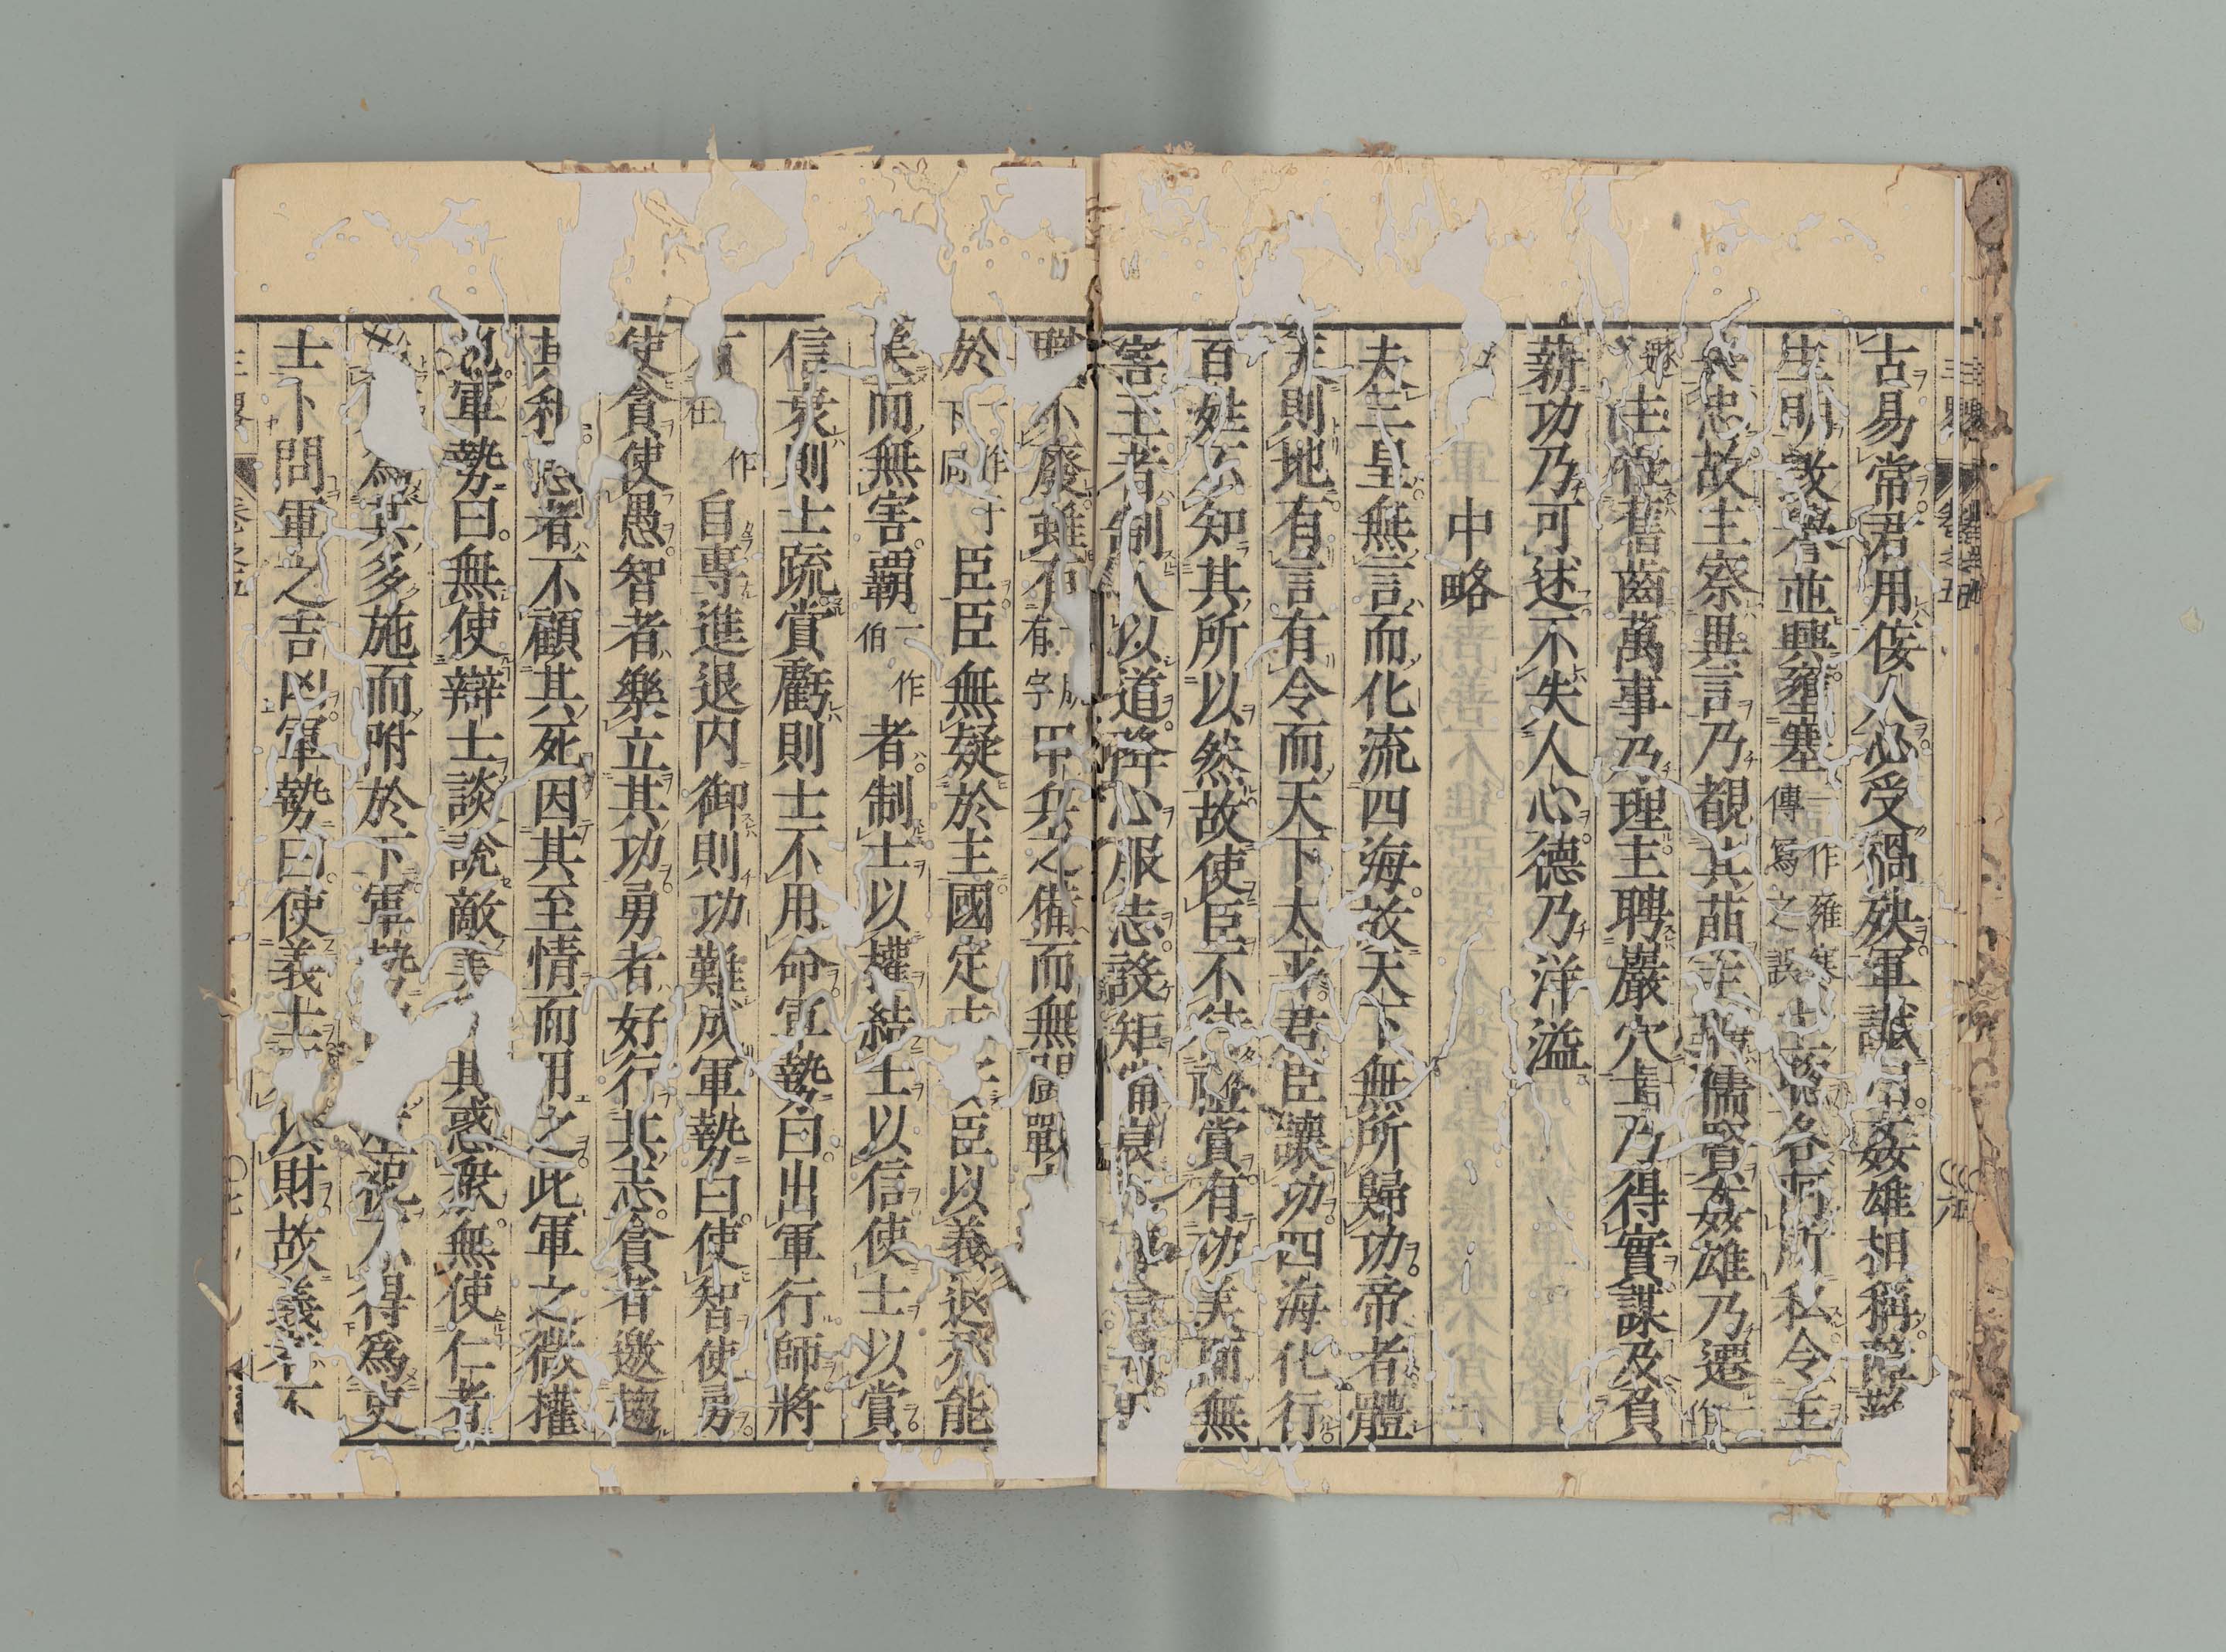 古易常君用佞人必受禍殃軍讖曰姦雄相稱
主明毀譽並興壅塞一作雍塞傳寫之誤主聰各阿所私令主
失忠故主察異言乃覩其萌主聘儒賢姦雄乃遯一作
遂主任舊齒萬事乃理主聘巖穴士乃得實謀及負
薪功乃可述不失人心德乃洋溢
中略
夫三皇無言而化流四海故天下無所歸功帝者體
天則地有言有令而天下太平君臣讓功四海化行
百姓不知其所以然故使臣不待禮賞有功美而無
害王者制人以道降心服志設矩備衰
職不廢雖有一成有字甲兵之備而無鬪戰
於一作于下同臣臣無疑於主國定主臣以義退亦能
美而無害覇一作伯者制士以權結士以信使士以賞
信衰則士疏賞虧則士不用命軍勢曰出軍行師將
在作自專進退内御則功難成軍勢曰使智使勇
使貪使愚智者樂立其功勇者好行其志貪者邀趨
其利愚者不顧其死因其至情而用之此軍之微權
也軍勢曰無使辯士談說敵美其惑衆無使仁者
爲其多施而附於下軍勢祝不得爲吏
士卜問軍之吉凶軍勢曰使義士以財故義者不